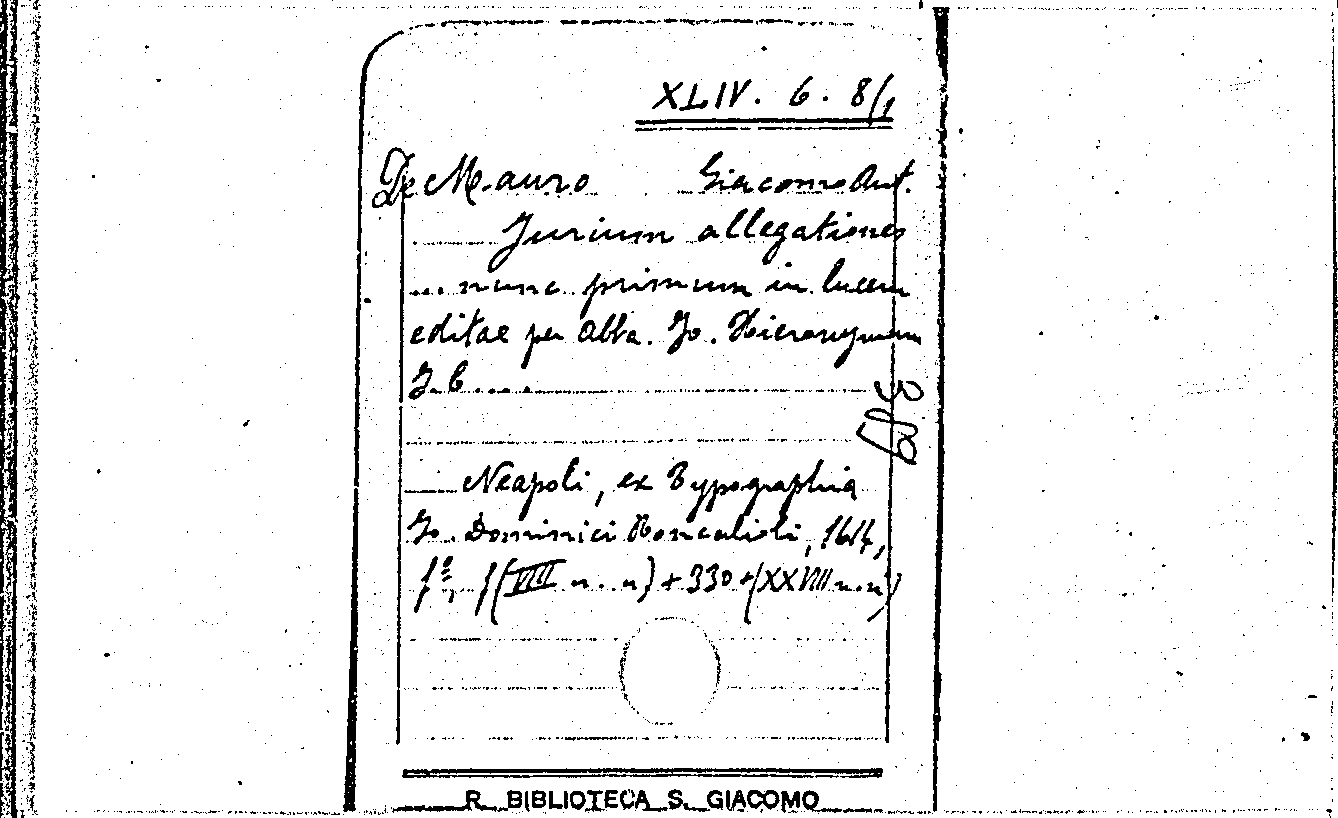 XLIV. 6. 8/1
De Mauro Giacomo Ant.
Jurium allegationes
... nunc primum in lucem
editae per Abba. Jo. Hieronymum
J. C ....
Neapoli, ex Typographia
Jo. Dominici Roncalioli, 1614,
fº, f(VIII n. n) + 330 + (XXVIII n. n)
R. BIBLIOTECA S. GIACOMO